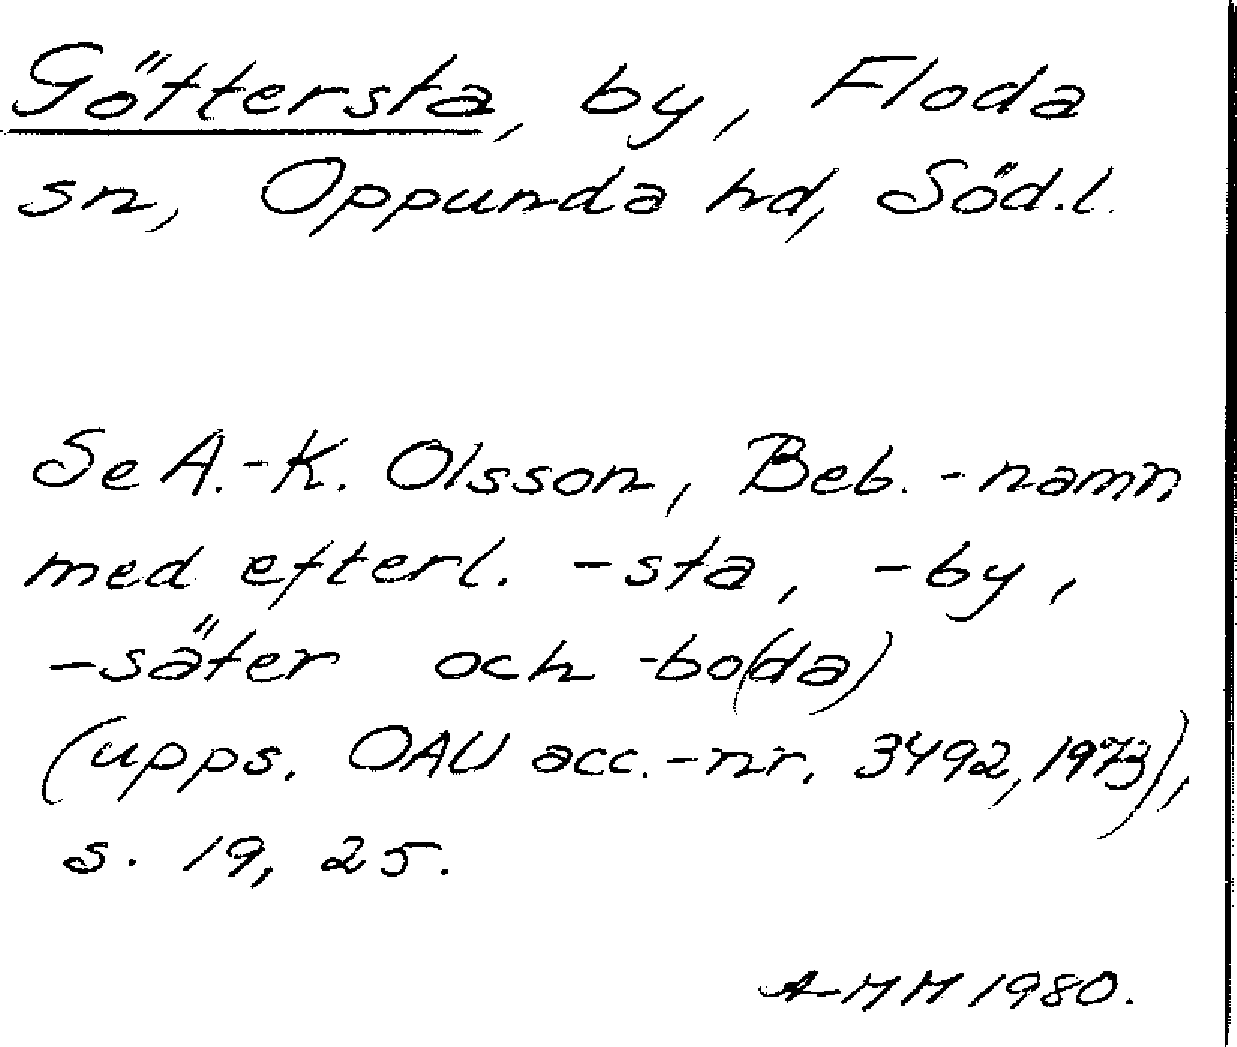 Göttersta, by, Floda
sn, Oppunda hd, Söd.l.
Se A.-K. Olsson, Beb.-namn
med efterl. -sta, -by,
-säter och -bo(da)
(upps. OAU acc.-nr. 3492, 1973),
s. 19, 25.
AMM 1980.